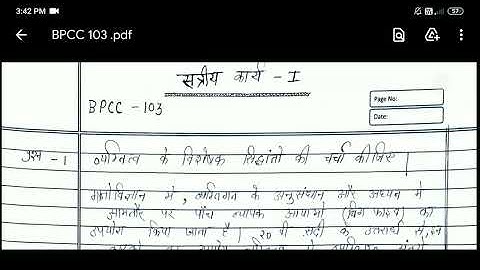 3:42 PM
57
BPCC 103 .pdf
सत्रीय कार्य - I
BPCC - 103
Page No:
Date:
प्रश्न - 1 व्यक्तित्व के विशेषक सिद्धांतो की चर्चा कीजिए।
मनोविज्ञान में, व्यक्तिगत के अनुसंधान और अध्यन मे
आमतौर पर पाँच व्यापक आयामो (बिग फाइव) का
उपयोग किया जाता है। 20 वी सदी के उत्तरार्ध से, इन